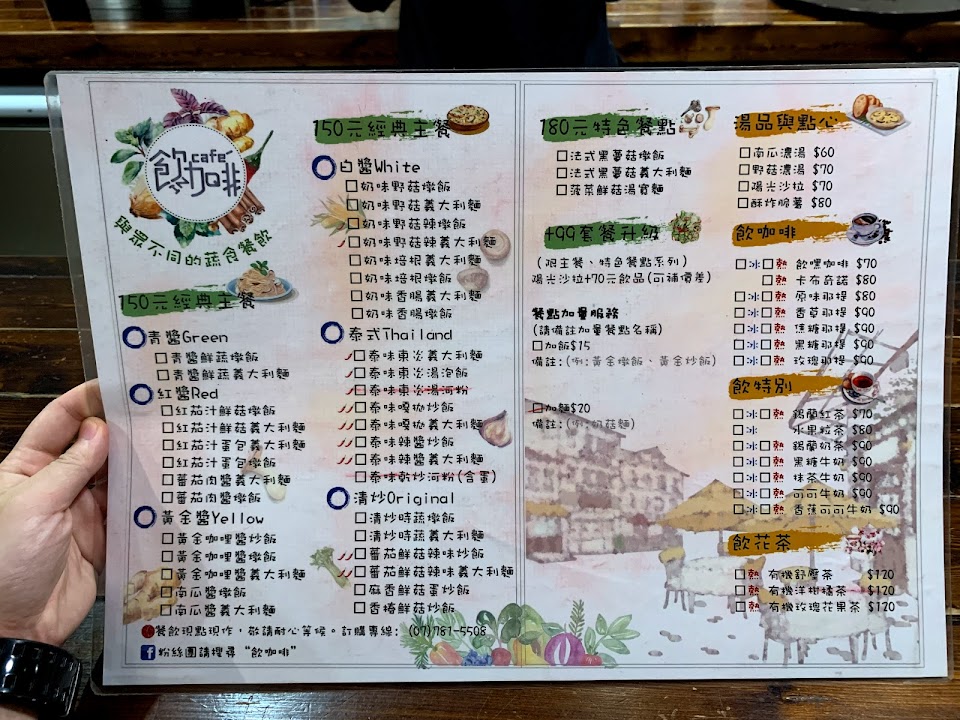 飲咖啡
cafe
與眾不同的蔬食餐飲
150元經典主餐
青醬Green
□青醬鮮蔬燉飯
□青醬鮮蔬義大利麵
紅醬Red
□紅茄汁鮮菇燉飯
□紅茄汁鮮菇義大利麵
□紅茄汁蛋包義大利麵
□紅茄汁蛋包燉飯
□蕃茄肉醬義大利麵
□蕃茄肉醬燉飯
黃金醬Yellow
□黃金咖哩醬炒飯
□黃金咖哩醬燉飯
□黃金咖哩醬義大利麵
□南瓜醬燉飯
□南瓜醬義大利麵
150元經典主餐
白醬White
□奶味野菇燉飯
□奶味野菇義大利麵
□奶味野菇辣燉飯
□奶味野菇辣義大利麵
□奶味培根義大利麵
□奶味培根燉飯
□奶味香腸義大利麵
□奶味香腸燉飯
泰式Thailand
□泰味東炎義大利麵
□泰味東炎湯泡飯
□泰味東炎湯河粉
□泰味嘎拋炒飯
□泰味嘎拋義大利麵
□泰味辣醬炒飯
□泰味辣醬義大利麵
□泰味乾炒河粉(含蛋)
清炒Original
□清炒時蔬燉飯
□清炒時蔬義大利麵
□蕃茄鮮菇辣味炒飯
□蕃茄鮮菇辣味義大利麵
□麻香鮮菇蛋炒飯
□香椿鮮菇炒飯
餐飲現點現作，敬請耐心等候。訂購專線: (07)781-5508
粉絲團請搜尋“飲咖啡”
180元特色餐點
□法式黑蘑菇燉飯
□法式黑蘑菇義大利麵
□菠菜鮮菇湯寬麵
+99套餐升級
(限主餐、特色餐點系列)
陽光沙拉+70元飲品(可補價差)
餐點加量服務
(請備註加量餐點名稱)
□加飯$15
備註:(例:黃金燉飯、黃金炒飯)
□加麵$20
備註:(例:奶菇麵)
湯品與點心
□南瓜濃湯 $60
□野菇濃湯 $70
□陽光沙拉 $70
□酥炸脆薯 $80
飲咖啡
□冰□熱 飲嘿咖啡 $70
□熱 卡布奇諾 $80
□冰□熱 原味那提 $80
□冰□熱 香草那提 $90
□冰□熱 焦糖那提 $90
□冰□熱 黑糖那提 $90
□冰□熱 玫瑰那提 $90
飲特別
□冰□熱 錫蘭紅茶 $70
□冰 水果粒茶 $80
□冰□熱 錫蘭奶茶 $90
□冰□熱 黑糖牛奶 $90
□冰□熱 抹茶牛奶 $90
□冰□熱 可可牛奶 $90
□冰□熱 香蕉可可牛奶 $90
飲花茶
□熱 有機舒壓茶 $120
□熱 有機洋柑橘茶 $120
□熱 有機玫瑰花果茶 $120